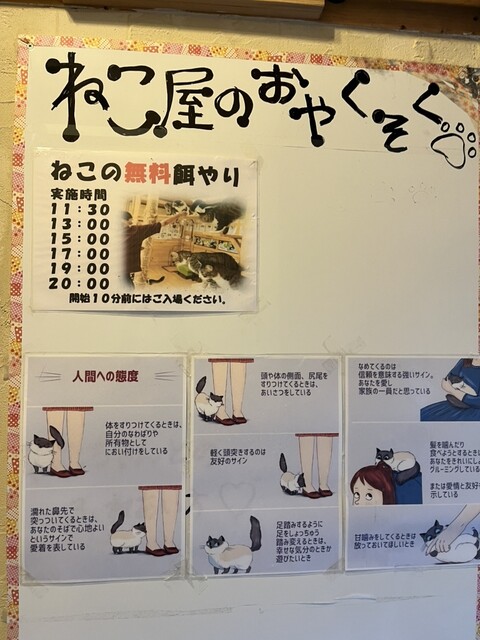 ねこ屋のおやくそく
ねこの無料餌やり
実施時間
11：30
13：00
15：00
17：00
19：00
20：00
開始10分前にはご入場ください。
人間への態度
体をすりつけてくるときは、
自分のなわばりや
所有物として
におい付けをしている
濡れた鼻先で
突っついてくるときは、
あなたのそばで心地よい
というサインで
愛着を表している
頭や体の側面、尻尾を
すりつけてくるときは、
あいさつをしている
軽く頭突きするのは
友好のサイン
足踏みするように
足をしょっちゅう
踏み変えるときは、
幸せな気分のときか
遊びたいとき
なめてくるのは
信頼を意味する強いサイン。
あなたを愛し
家族の一員だと思っている
髪を噛んだり
食べようとするときは
あなたをきれいにし
グルーミングしている
または愛情と友好
示している
甘噛みをしてくるときは
放っておいてほしいとき